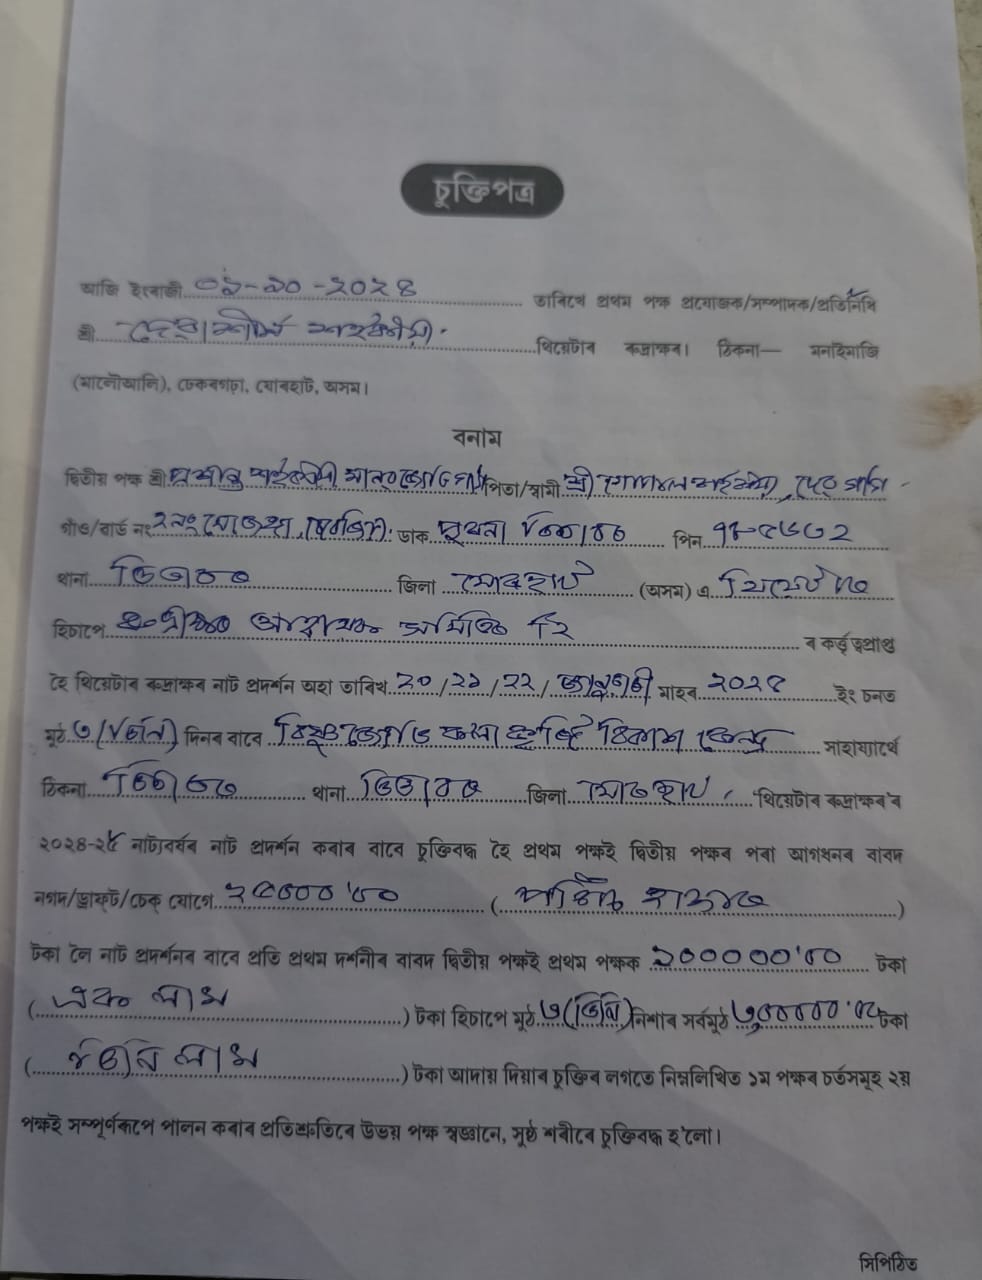 চুক্তিপত্ৰ
আজি ইংৰাজী ০১-১০-২০২৪ তাৰিখে প্ৰথম পক্ষ প্ৰযোজক/সম্পাদক/প্ৰতিনিধি
শ্ৰী থিয়েটাৰ কদ্ৰাক্ষৰ। ঠিকনা— মনাইমাজি
(মালৌআলি), ঢেকৰগঢ়া, যোৰহাট, অসম।
বনাম
দ্বিতীয় পক্ষ শ্ৰী পিতা/স্বামী শ্ৰী
গাঁও/বাৰ্ড নং ২নং ডাক পিন
থানা তিতাবৰ জিলা যোৰহাট (অসম) এ থিয়েটাৰ
হিচাপে ৰ কৰ্তৃত্বপ্ৰাপ্ত
হৈ থিয়েটাৰ কদ্ৰাক্ষৰ নাট প্ৰদৰ্শন অহা তাৰিখ ২০/২১/২২/ জানুৱাৰী মাহৰ ২০২৫ ইং চনত
মুঠ ৩(তিনি) দিনৰ বাবে বিকাশ কেন্দ্ৰ সাহায্যাৰ্থে
ঠিকনা তিতাবৰ থানা তিতাবৰ জিলা যোৰহাট, থিয়েটাৰ কদ্ৰাক্ষৰ'ৰ
২০২৪-২৫ নাট্যবৰ্ষৰ নাট প্ৰদৰ্শন কৰাৰ বাবে চুক্তিবদ্ধ হৈ প্ৰথম পক্ষই দ্বিতীয় পক্ষৰ পৰা আগধনৰ বাবদ
নগদ/ড্ৰাফ্ট/চেক্ যোগে ২৫০০০'০০ ( হাজাৰ )
টকা লৈ নাট প্ৰদৰ্শনৰ বাবে প্ৰতি প্ৰথম দৰ্শনীৰ বাবদ দ্বিতীয় পক্ষই প্ৰথম পক্ষক ১০০০০০'০০ টকা
( এক লাখ ) টকা হিচাপে মুঠ ৩(তিনি) নিশাৰ সৰ্বমুঠ ৩,০০০০০'০০ টকা
( তিনি লাখ ) টকা আদায় দিয়াৰ চুক্তিৰ লগতে নিম্নলিখিত ১ম পক্ষৰ চৰ্তসমূহ ২য়
পক্ষই সম্পূৰ্ণৰূপে পালন কৰাৰ প্ৰতিশ্ৰুতিৰে উভয় পক্ষ স্বজ্ঞানে, সুস্থ শৰীৰে চুক্তিবদ্ধ হ'লো।
সিপিঠিত